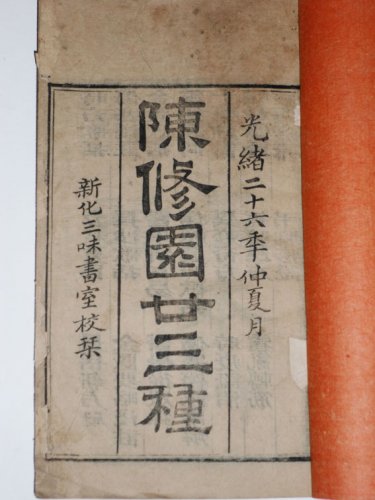 光緒二十六季仲夏月
陳修園廿三種
新化三味書室校栞